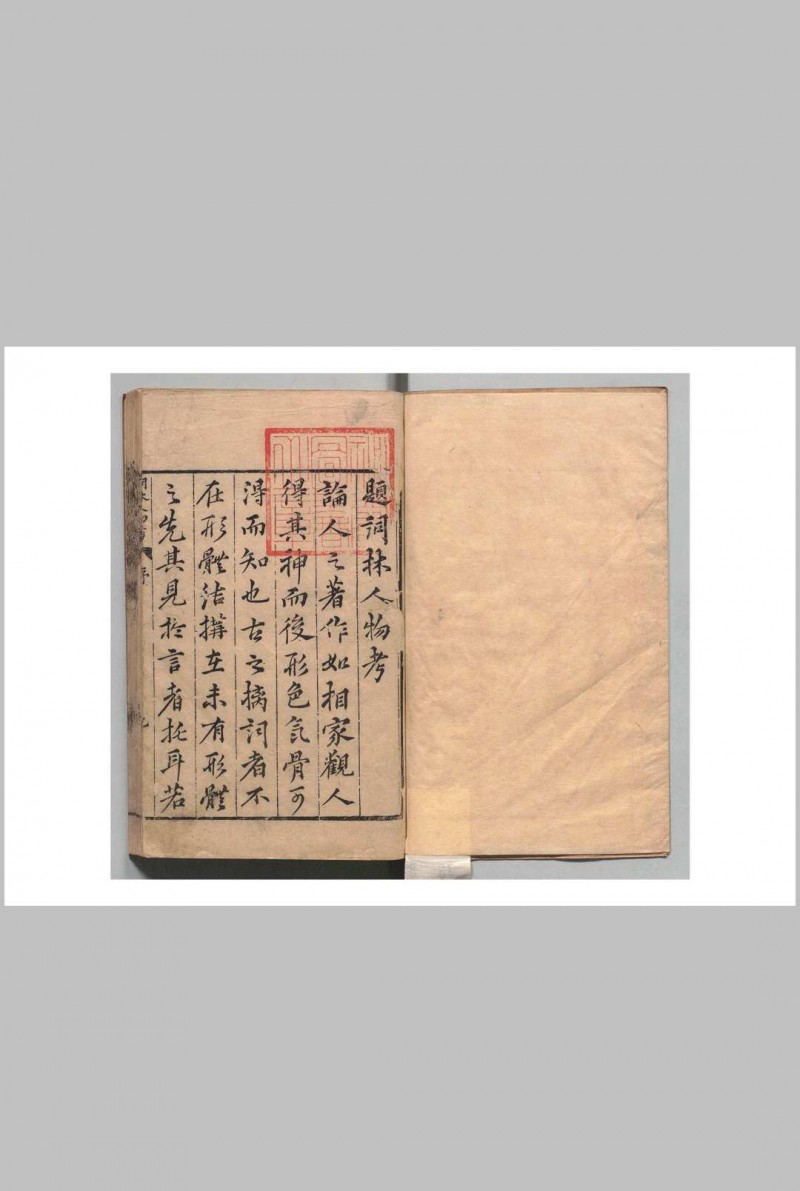 題詞林人物考
論人之著作如相家觀人
得其神而後形色氣骨可
得而知也古之摛詞者不
在形體結搆在未有形體
之先其見於言者托耳若
序